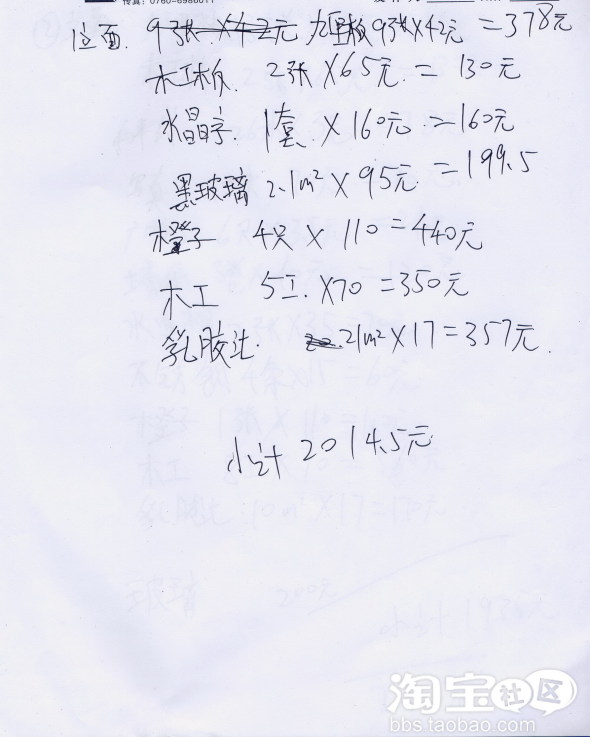 传真：0760-6986011
位面. 9张 ×42元 九厘板 9张×42元 =378元
木工板 2张 ×65元 = 130元
水晶字. 1套 ×160元 =160元
黑玻璃 2.1m² × 95元 =199.5
橙子 4只 × 110=440元
木工 5工. ×70=350元
乳胶漆. 21m²×17=357元.
小计 2014.5元
淘宝社区
bbs.taobao.com